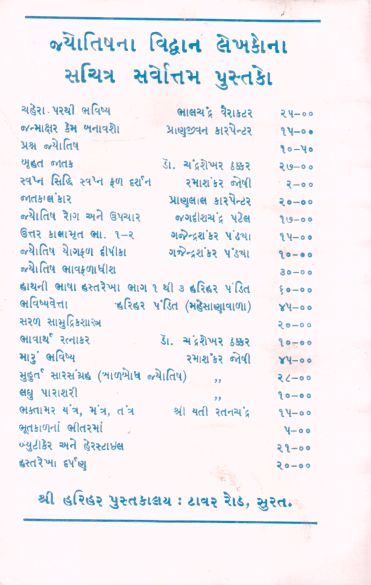 જ્યોતિષના વિદ્વાન લેખકોના
સચિત્ર સર્વોત્તમ પુસ્તકો
ચહેરા પરથી ભવિષ્ય ભાલચંદ્ર વૈરાકટર ૨૫-૦૦
જન્માક્ષર કેમ બનાવશો પ્રાણજીવન કારપેન્ટર ૧૫-૦૦
પ્રશ્ન જ્યોતિષ ૧૦-૫૦
બૃહત જાતક ડૉ. ચંદ્રશેખર ઠક્કર ૨૭-૦૦
સ્વપ્ન સિદ્ધિ સ્વપ્ન ફળ દર્શન રમાશંકર જોષી ૨-૦૦
જાતકાલંકાર પ્રાણલાલ કારપેન્ટર ૨૦-૦૦
જ્યોતિષ રોગ અને ઉપચાર જગદીશચંદ્ર પટેલ ૧૭-૦૦
ઉત્તર કાલામૃત ભા. ૧-૨ ગજેન્દ્રશંકર પંડયા ૧૫-૦૦
જ્યોતિષ યોગફળ દીપીકા ગજેન્દ્રશંકર પંડયા ૧૦-૦૦
જ્યોતિષ ભાવફળાધીશ ૩૦-૦૦
હાથની ભાષા હસ્તરેખા ભાગ ૧ થી ૩ હરિહર પંડિત ૬૦-૦૦
ભવિષ્યવેત્તા હરિહર પંડિત (મહેસાણાવાળા) ૪૫-૦૦
સરળ સામુદ્રિકશાસ્ત્ર ૨૦-૦૦
ભાવાર્થ રત્નાકર ડૉ. ચંદ્રશેખર ઠક્કર ૧૦-૦૦
મારૂં ભવિષ્ય રમાશંકર જોષી ૪૫-૦૦
મુહુર્ત સારસંગ્રહ (બાળબોધ જ્યોતિષ) ,, ૨૮-૦૦
લઘુ પારાશરી ,, ૧૦-૦૦
ભક્તામર યંત્ર, મંત્ર, તંત્ર શ્રી યતી રતનચંદ્ર ૧૫-૦૦
ભૂતકાળનાં ભીતરમાં ૫-૦૦
બ્યુટીકેર અને હેરસ્ટાઇલ ૨૧-૦૦
હસ્તરેખા દર્પણ ૨૦-૦૦
શ્રી હરિહર પુસ્તકાલય : ટાવર રોડ, સુરત.